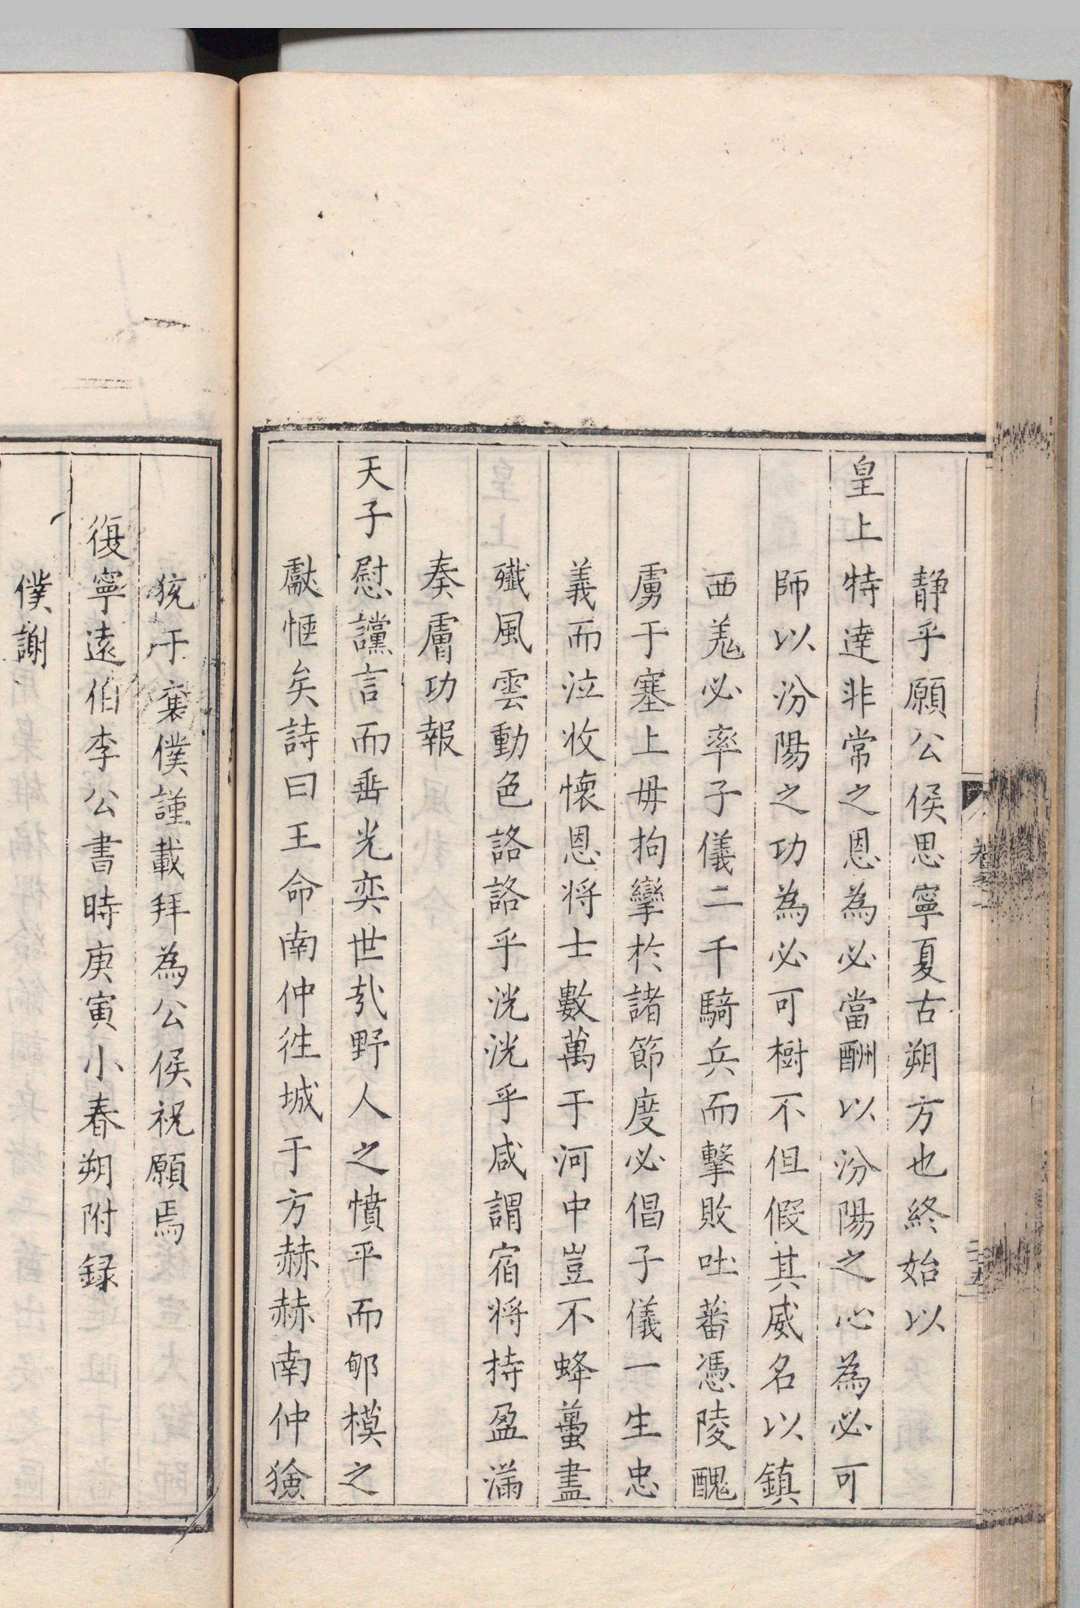 静乎願公侯思寧夏古朔方也終始以
皇上特達非常之恩為必當酬以汾陽之心為必可
師以汾陽之功為必可樹不但假其威名以鎮
西羗必率子儀二千騎兵而擊敗吐蕃憑陵醜
虜于塞上毋拘攣於諸節度必倡子儀一生忠
義而泣收懷恩将士數萬于河中豈不蜂蠆盡
殲風雲動色詻詻乎洸洸乎咸謂宿将持盈滿
奏膚功報
天子慰讜言而垂光奕世㢤野人之憤平而郇模之
獻愜矣詩曰王命南仲徃城于方赫赫南仲獫
狁于襄僕謹載拜為公侯祝願焉
復寧遠伯李公書時庚寅小春朔附録
僕謝